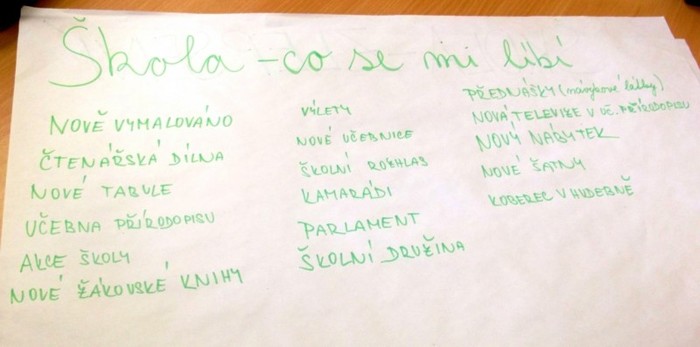 Škola - co se mi líbí
NOVĚ VYMALOVÁNO
ČTENÁŘSKÁ DÍLNA
NOVÉ TABULE
UČEBNA PŘÍRODOPISU
AKCE ŠKOLY
NOVÉ ŽÁKOVSKÉ KNIHY
VÝLETY
NOVÉ UČEBNICE
ŠKOLNÍ ROZHLAS
KAMARÁDI
PARLAMENT
ŠKOLNÍ DRUŽINA
PŘEDNÁŠKY (návykové látky)
NOVÁ TELEVIZE V UČ. PŘÍRODOPISU
NOVÝ NÁBYTEK
NOVÉ ŠATNY
KOBEREC V HUDEBNĚ